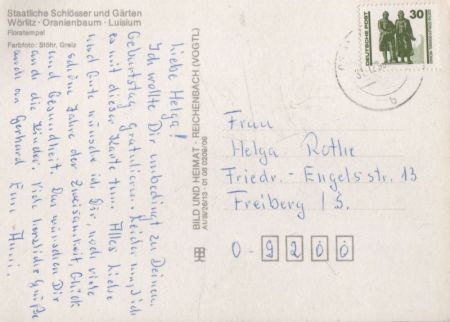 Staatliche Schlösser und Gärten
Wörlitz · Oranienbaum · Luisium
Floratempel
Farbfoto: Stöhr, Greiz
Liebe Helga!
Ich wollte Dir unbedingt zu Deinem
Geburtstag Gratulieren. Leider muß ich
es mit dieser Karte tun. Alles Liebe
und Gute wünsche ich Dir, noch viele
schöne Jahre der Zweisamkeit, Glück
und Gesundheit. Das wünschen Dir
auch die Kinder. Viele herzliche Grüße
auch von Gerhard Eure
BILD UND HEIMAT · REICHENBACH (VOGTL)
DEUTSCHE POST
30
b
Frau
Helga Rothe
Friedr.-Engelsstr. 13
Freiberg / S.
O-9200